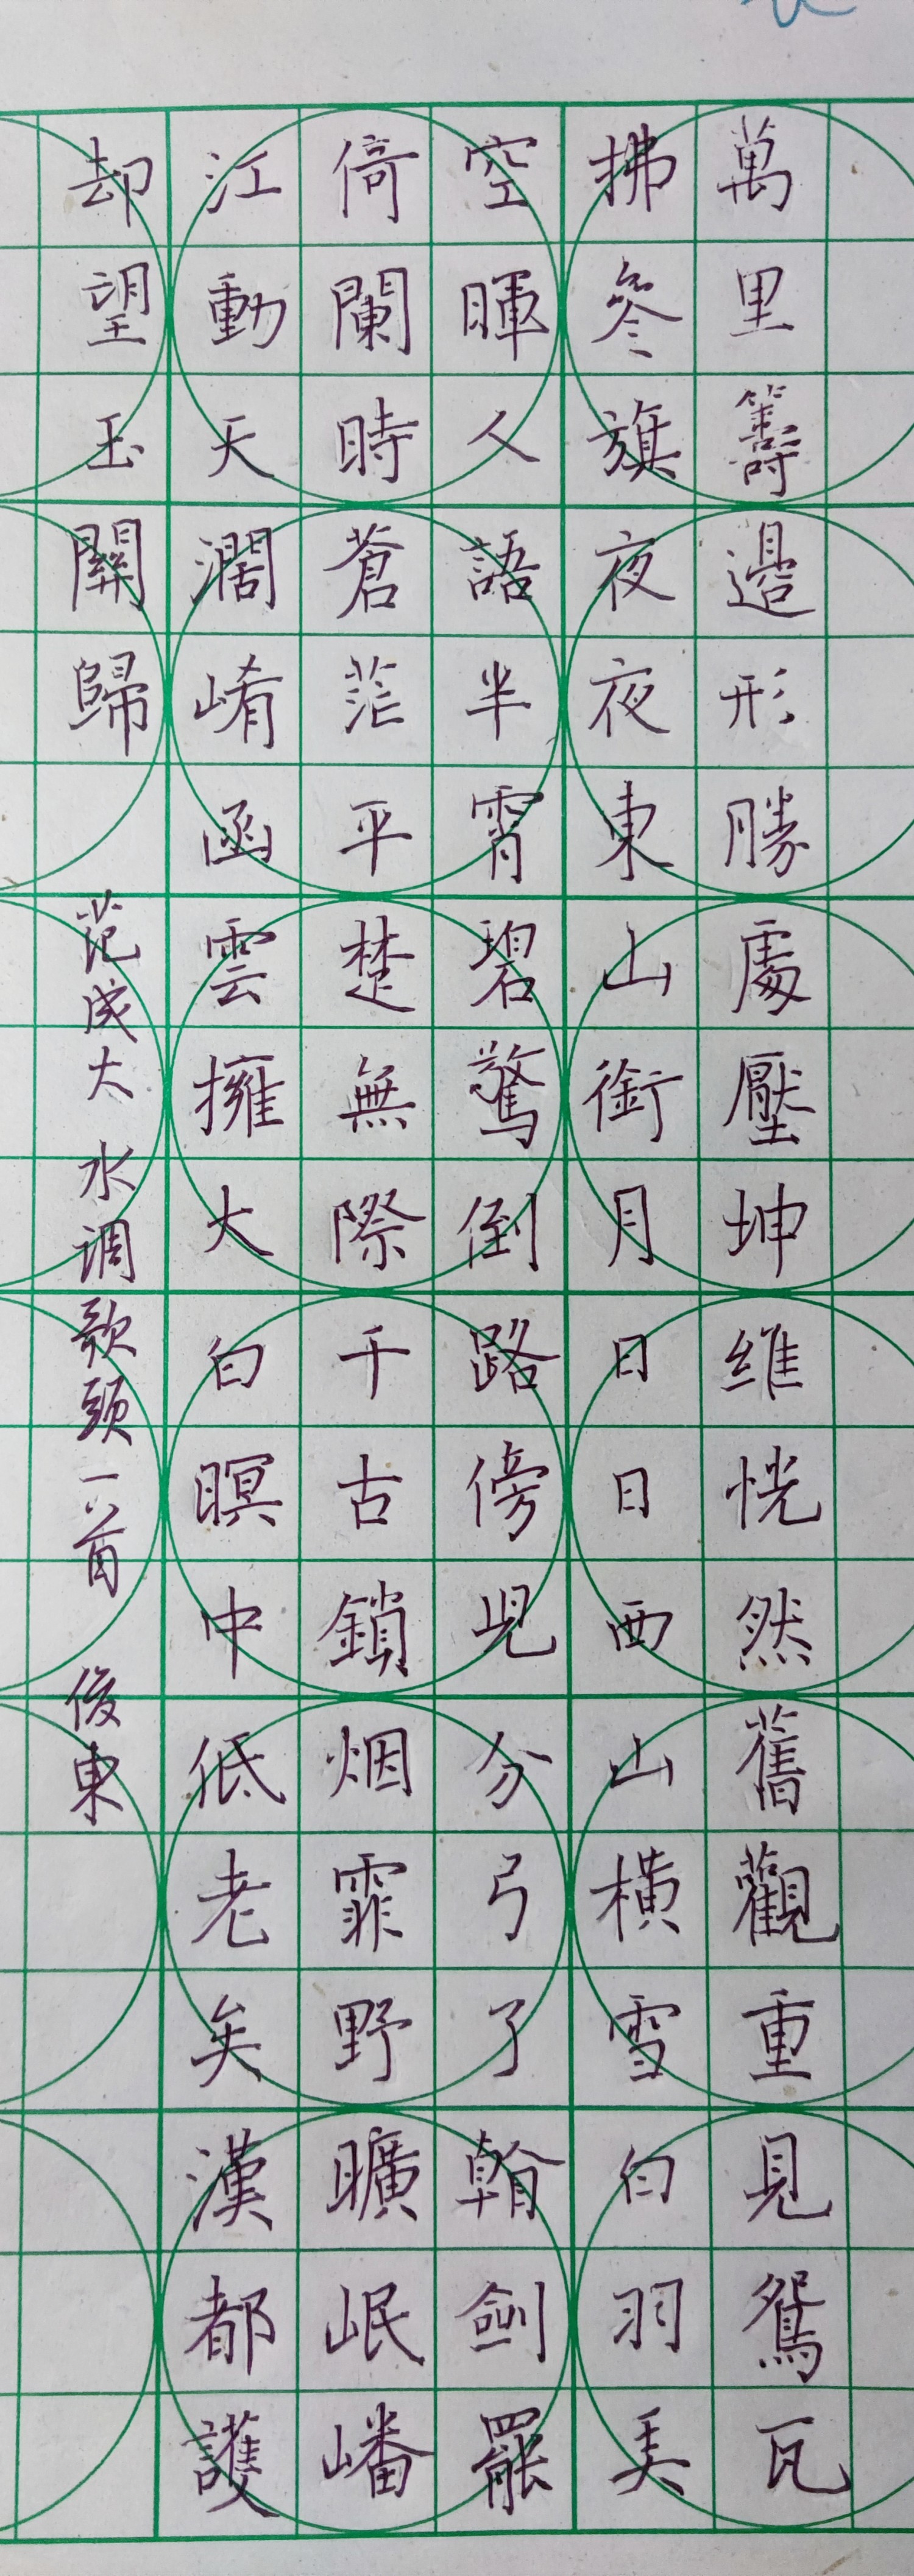 萬里籌邊形勝處壓坤維恍然舊觀重見鴛瓦
拂參旗夜夜東山銜月日日西山橫雪白羽美
空暉人語半霄碧驚倒路傍兒分弓了翰劍罷
倚闌時蒼茫平楚無際千古鎖烟霏野曠岷嶓
江動天濶崤函雲擁大白暝中低老矣漢都護
却望玉關歸
范成大 水调歌頭一首 俊東